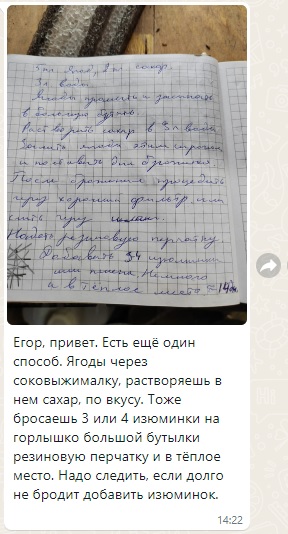 5 кг ягод, 2 кг сахар.
3 л воды
Ягоды промыть и засыпать
в большую бутыль.
Растворить сахар в 3 л воды
Залить ягоды этим сиропом
и поставить для брожения.
После брожения процедить
через хороший фильтр или
слить через шланг.
Надеть резиновую перчатку.
Добавить 3-4 изюминки
или пшена. Немного
и в тёплое место ≈ 14 дн
Егор, привет. Есть ещё один
способ. Ягоды через
соковыжималку, растворяешь в
нем сахар, по вкусу. Тоже
бросаешь 3 или 4 изюминки на
горлышко большой бутылки
резиновую перчатку и в тёплое
место. Надо следить, если долго
не бродит добавить изюминок.
14:22